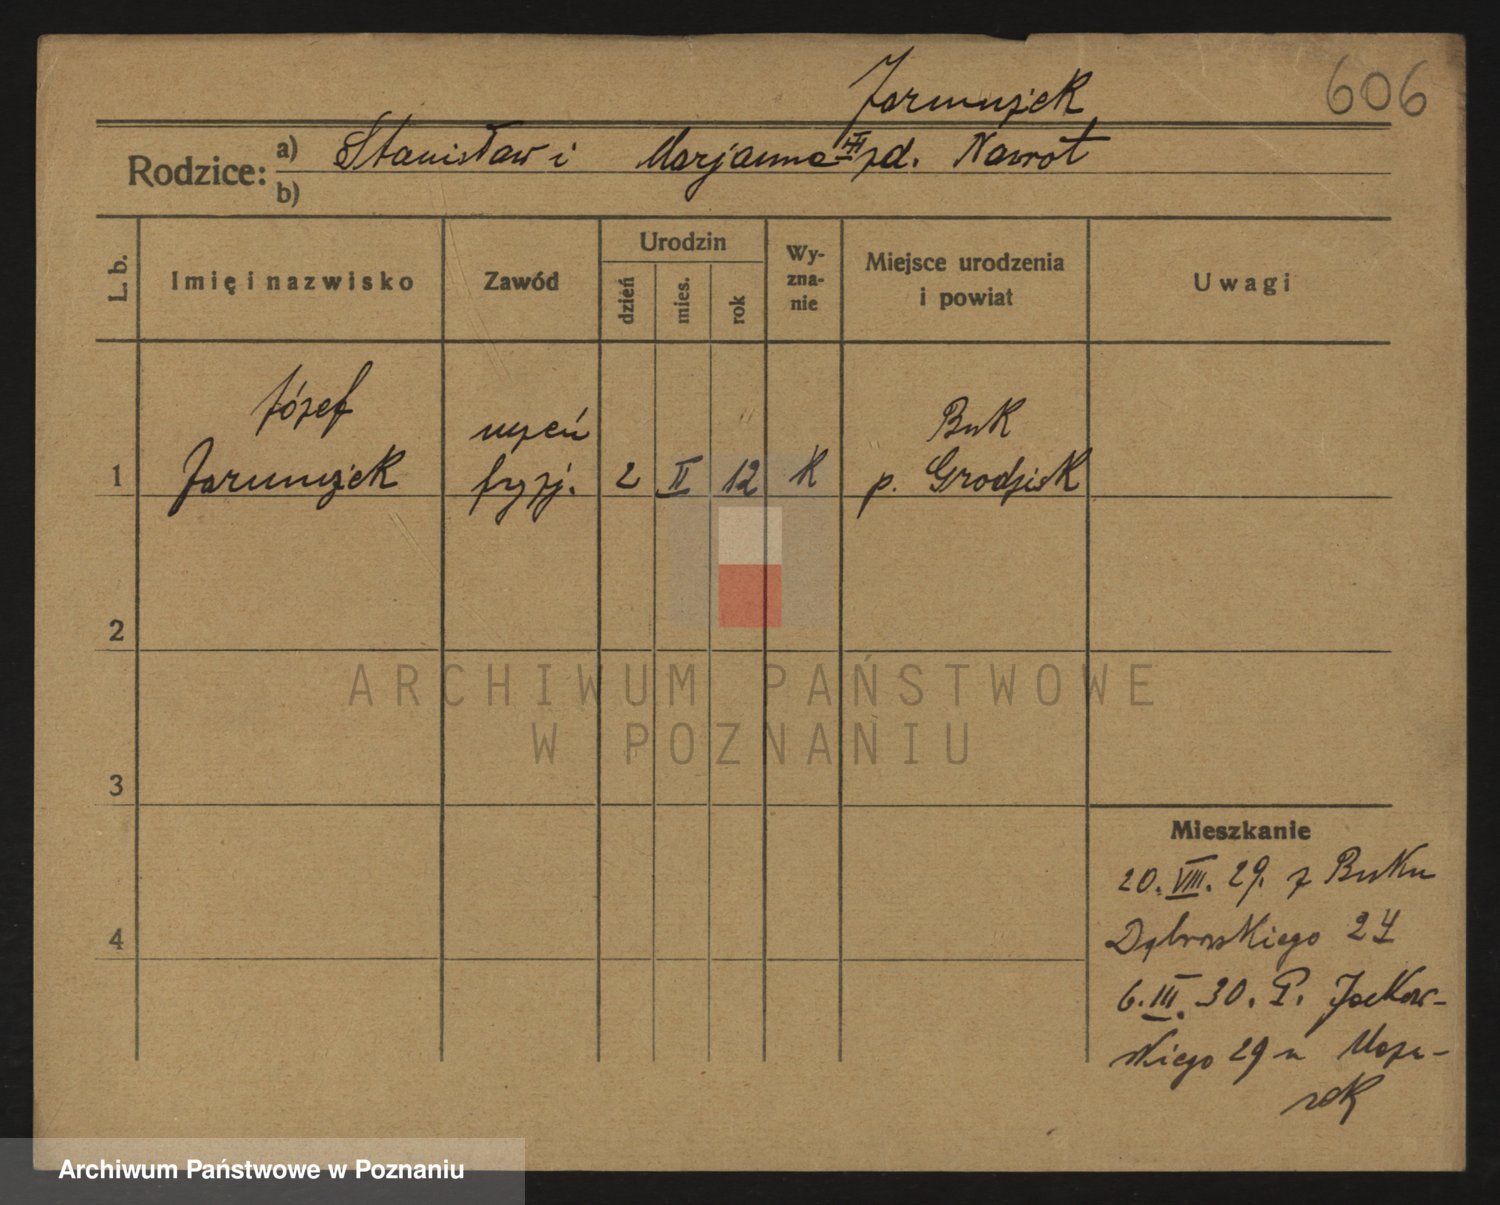 606
Jarmużek
Rodzice: a) Stanisław i Marjanna zd. Nawrot
b)
L. b.
Imię i nazwisko
Zawód
Urodzin
dzień
mies.
rok
Wy-
zna-
nie
Miejsce urodzenia
i powiat
Uwagi
Józef
uczeń
Buk
1 Jarmużek fryzj. 2 II 12 K p. Grodzisk
2
3
4
Mieszkanie
20. VIII. 29. z Buku
Dąbrowskiego 24
6. III. 30. P. Jackow-
skiego 29 u
ARCHIWUM PAŃSTWOWE
W POZNANIU
Archiwum Państwowe w Poznaniu